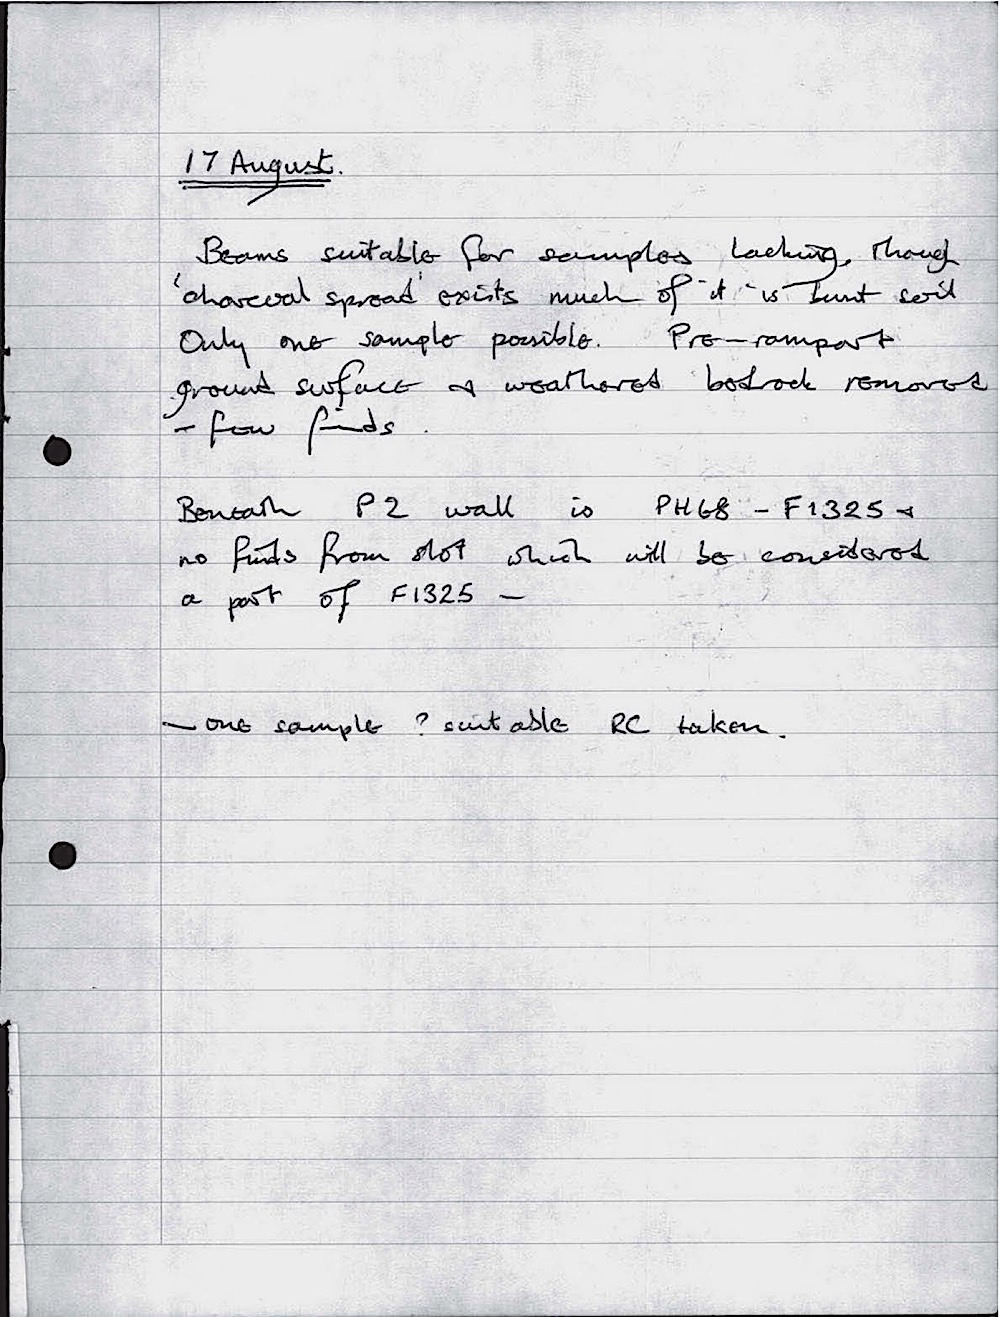 17 August.
Beams suitable for samples lacking, though
'charcoal spread' exists much of it is burnt soil
Only one sample possible. Pre-rampart
ground surface & weathered bedrock removed
- few finds.
Beneath P2 wall is PH68 - F1325 &
no finds from slot which will be considered
a part of F1325 -
- one sample ? suitable RC taken.